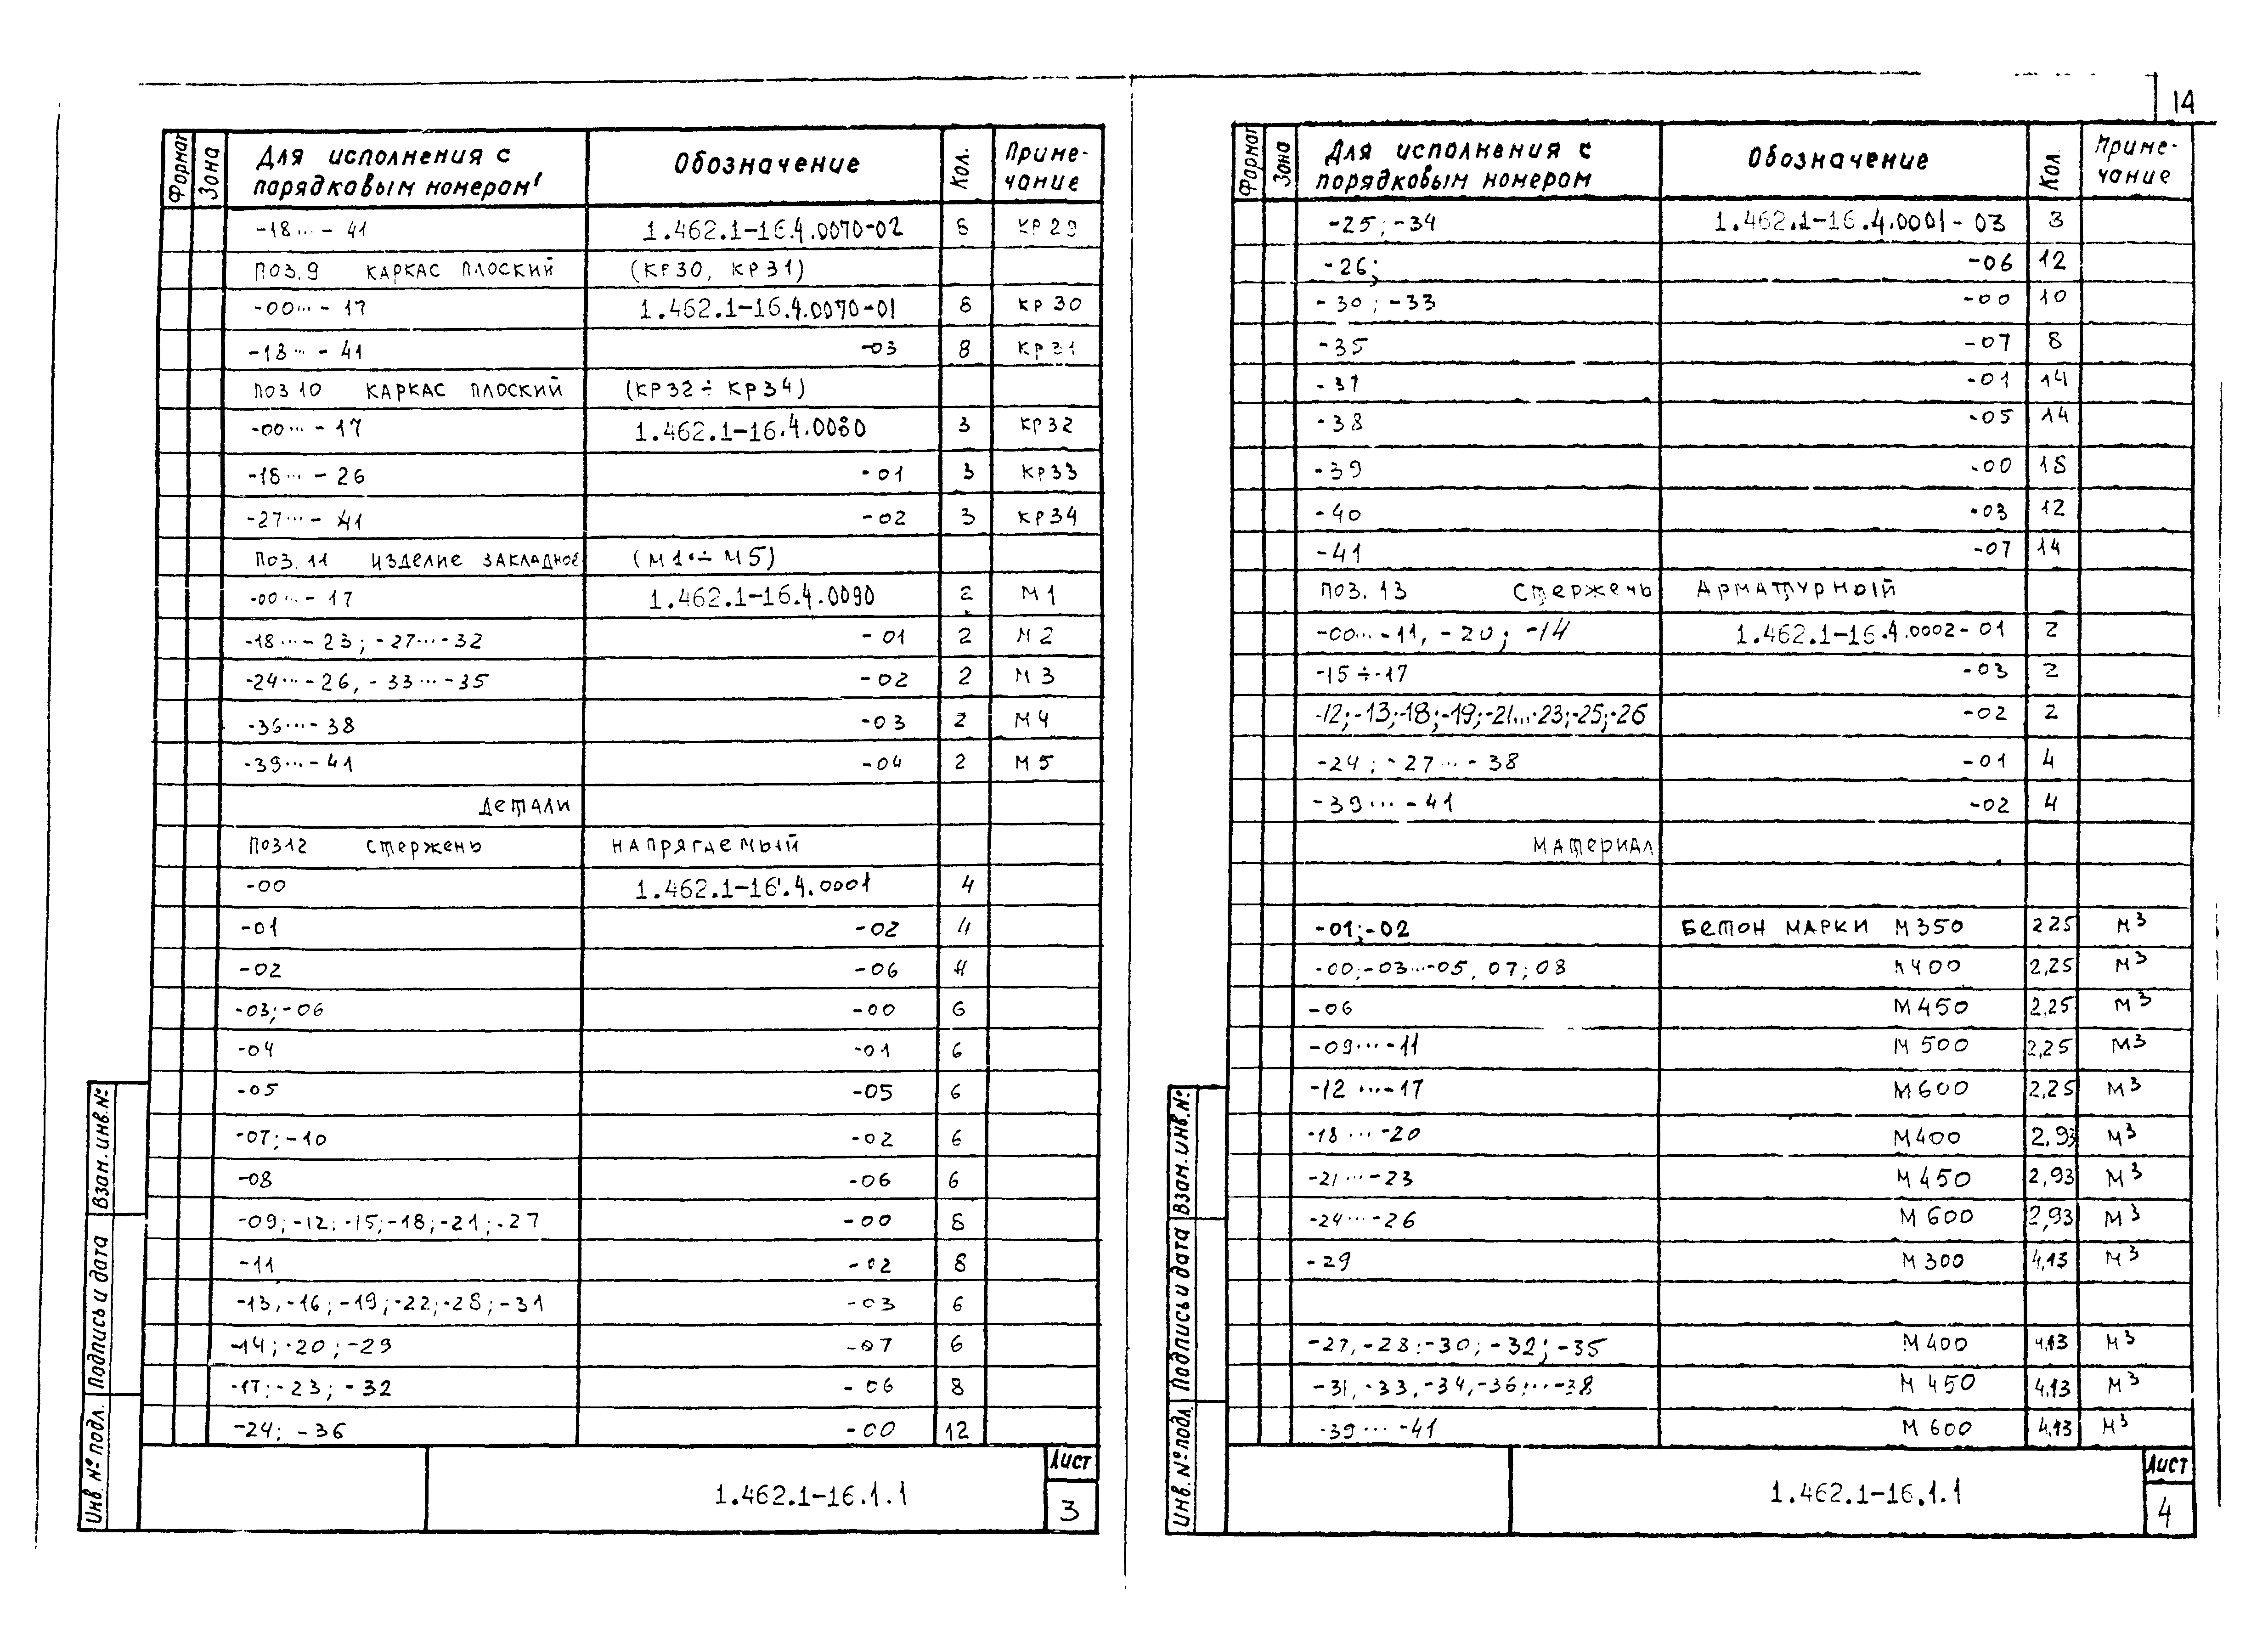 14
Формат Зона Для исполнения с порядковым номером Обозначение Кол. Примечание
-18... - 41 1.462.1-16.4.0070-02 8 КР29
Поз.9 каркас плоский (КР30, КР31)
-00... - 17 1.462.1-16.4.0070-01 8 КР30
-18... - 41 -03 8 КР31
Поз 10 каркас плоский (КР32 ÷ КР34)
-00... - 17 1.462.1-16.4.0080 3 КР32
-18... - 26 -01 3 КР33
-27... - 41 -02 3 КР34
Поз. 11 изделие закладное (М1 ÷ М5)
-00... - 17 1.462.1-16.4.0090 2 М1
-18... - 23; -27... -32 -01 2 М2
-24... -26, -33... -35 -02 2 М3
-36... - 38 -03 2 М4
-39... - 41 -04 2 М5
Детали
Поз12 стержень напрягаемый
-00 1.462.1-16.4.0001 4
-01 -02 4
-02 -06 4
-03; -06 -00 6
-04 -01 6
-05 -05 6
-07; -10 -02 6
-08 -06 6
-09; -12; -15; -18; -21; -27 -00 8
-11 -02 8
-13, -16; -19; -22; -28; -31 -03 6
-14; -20; -29 -07 6
-17; -23; -32 -06 8
-24; -36 -00 12
Взам. инв. №
Подпись и дата
Инв. № подл.
1.462.1-16.1.1
Лист
3
Формат Зона Для исполнения с порядковым номером Обозначение Кол. Примечание
-25; -34 1.462.1-16.4.0001-03 3
-26; -06 12
-30; -33 -00 10
-35 -07 8
-37 -01 14
-38 -05 14
-39 -00 18
-40 -03 12
-41 -07 14
Поз. 13 стержень арматурный
-00... -11, -20; -14 1.462.1-16.4.0002-01 2
-15 ÷ -17 -03 2
-12; -13; -18; -19; -21... -23; -25; -26 -02 2
-24; -27... -38 -01 4
-39... -41 -02 4
Материал
-01; -02 Бетон марки М350 2 25 м3
-00; -03... -05, 07; 08 М400 2,25 м3
-06 М450 2,25 м3
-09... -11 М500 2,25 м3
-12 ... -17 М600 2,25 м3
-18 ... -20 М400 2,93 м3
-21 ... -23 М450 2,93 м3
-24... -26 М600 2,93 м3
-29 М300 4,13 м3
-27, -28; -30; -32; -35 М400 4,13 м3
-31, -33, -34, -36; ... -38 М450 4,13 м3
-39 ... -41 М600 4,13 м3
Взам. инв. №
Подпись и дата
Инв. № подл.
1.462.1-16.1.1
Лист
4